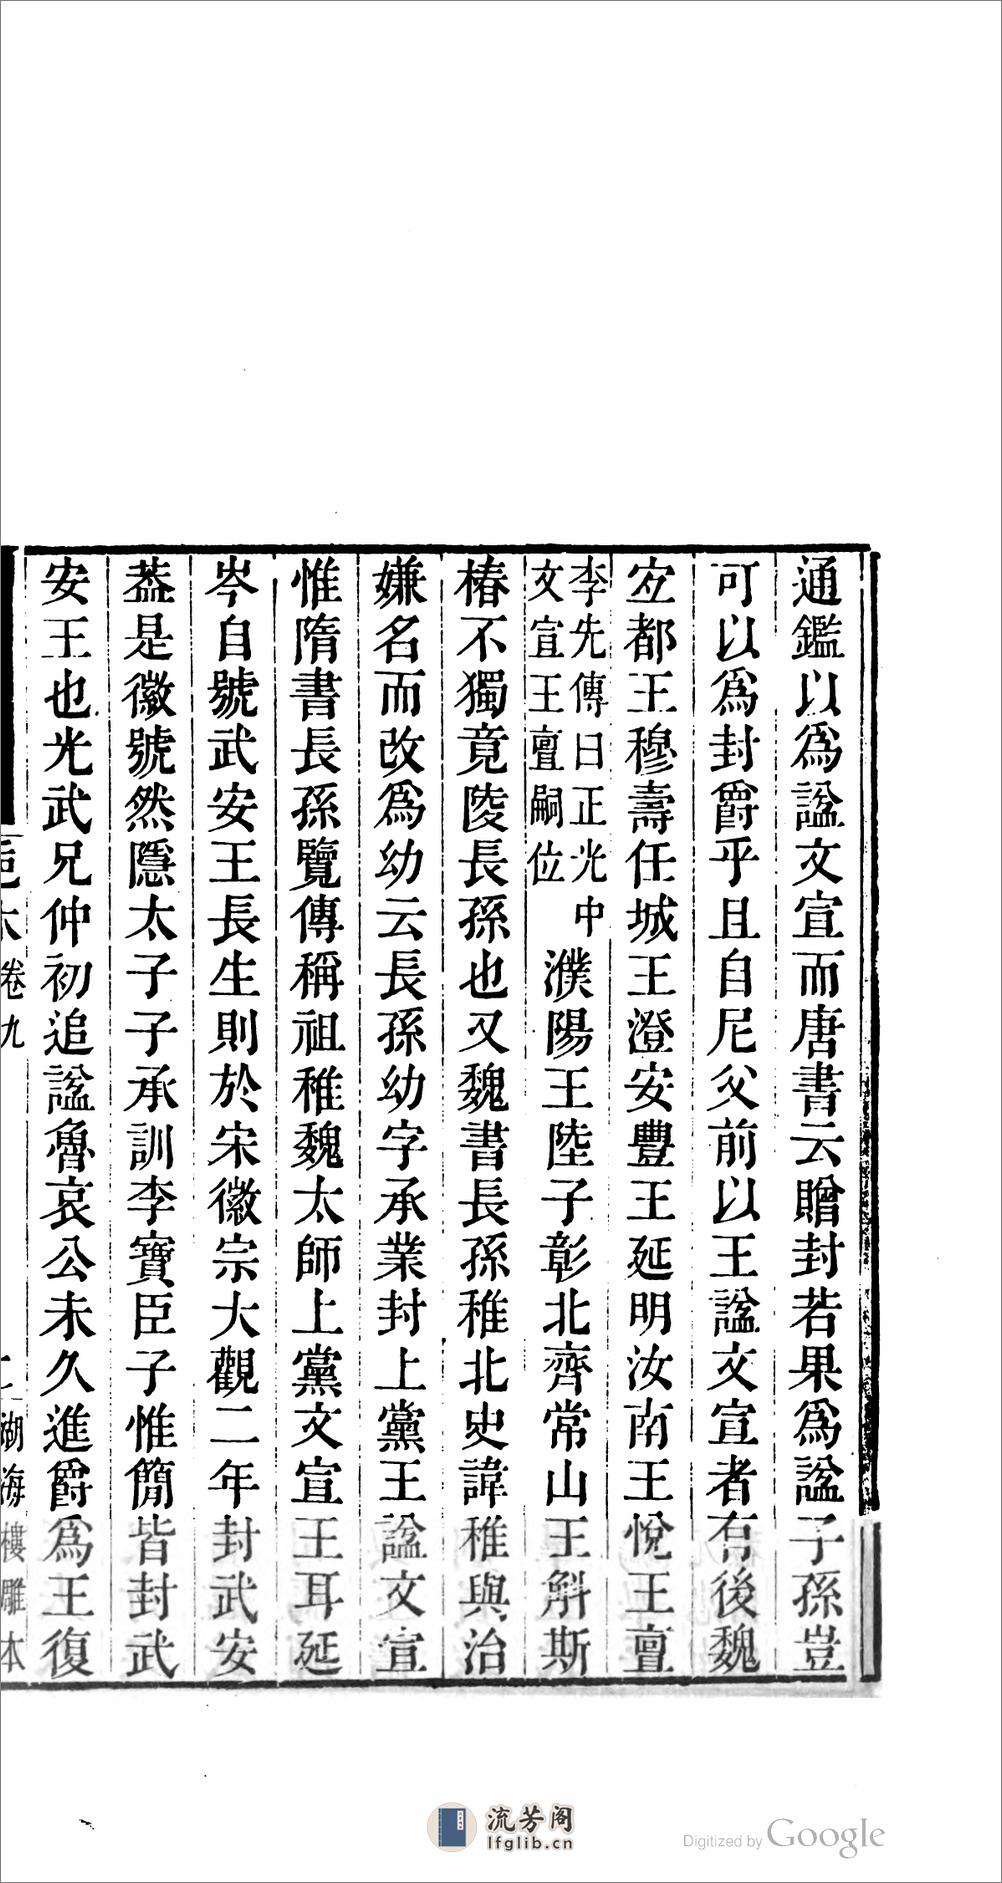 通鑑以爲諡文宣而唐書云贈封若果爲諡子孫豈
可以爲封爵乎且自尼父前以王諡文宣者有後魏
宐都王穆壽任城王澄安豐王延明汝南王悅王亶
李先傳曰正光中
文宣王亶嗣位
濮陽王陸子彰北齊常山王斛斯
椿不獨竟陵長孫也又魏書長孫稚北史諱稚與治
嫌名而改爲幼云長孫幼字承業封上黨王諡文宣
惟隋書長孫覽傳稱祖稚魏太師上黨文宣王耳延
岑自號武安王長生則於宋徽宗大觀二年封武安
葢是徽號然隱太子子承訓李寶臣子惟簡皆封武
安王也光武兄仲初追諡魯哀公未久進爵爲王復
卷九
湖海樓雕本
流芳阁
lfglib.cn
Digitized by Google